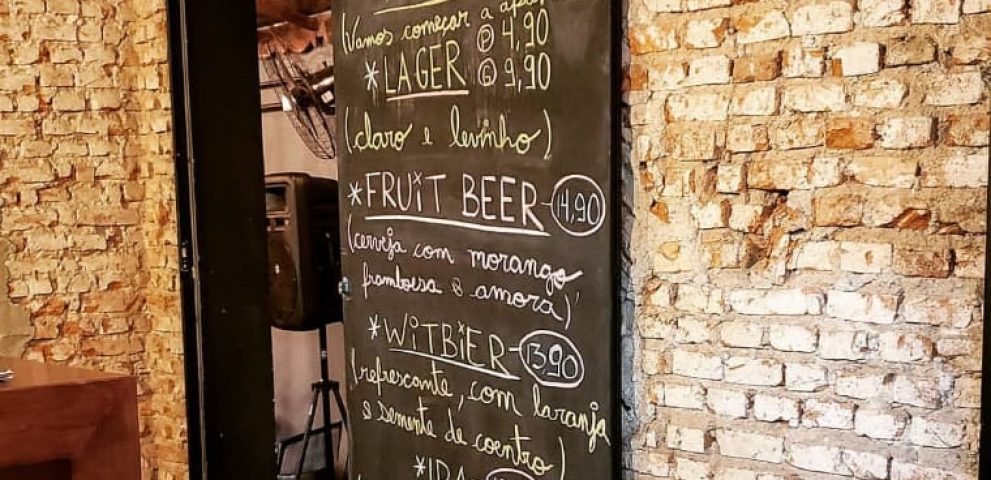 (Vamos começar a
*LAGER Ⓟ 4,90
Ⓖ 9,90
(claro e levinho)
*FRUIT BEER-14,90
(cerveja com morango
framboesa e amora)
*WITBIER-13,90
(refrescante, com laranja
e semente de coentro)
*IPA